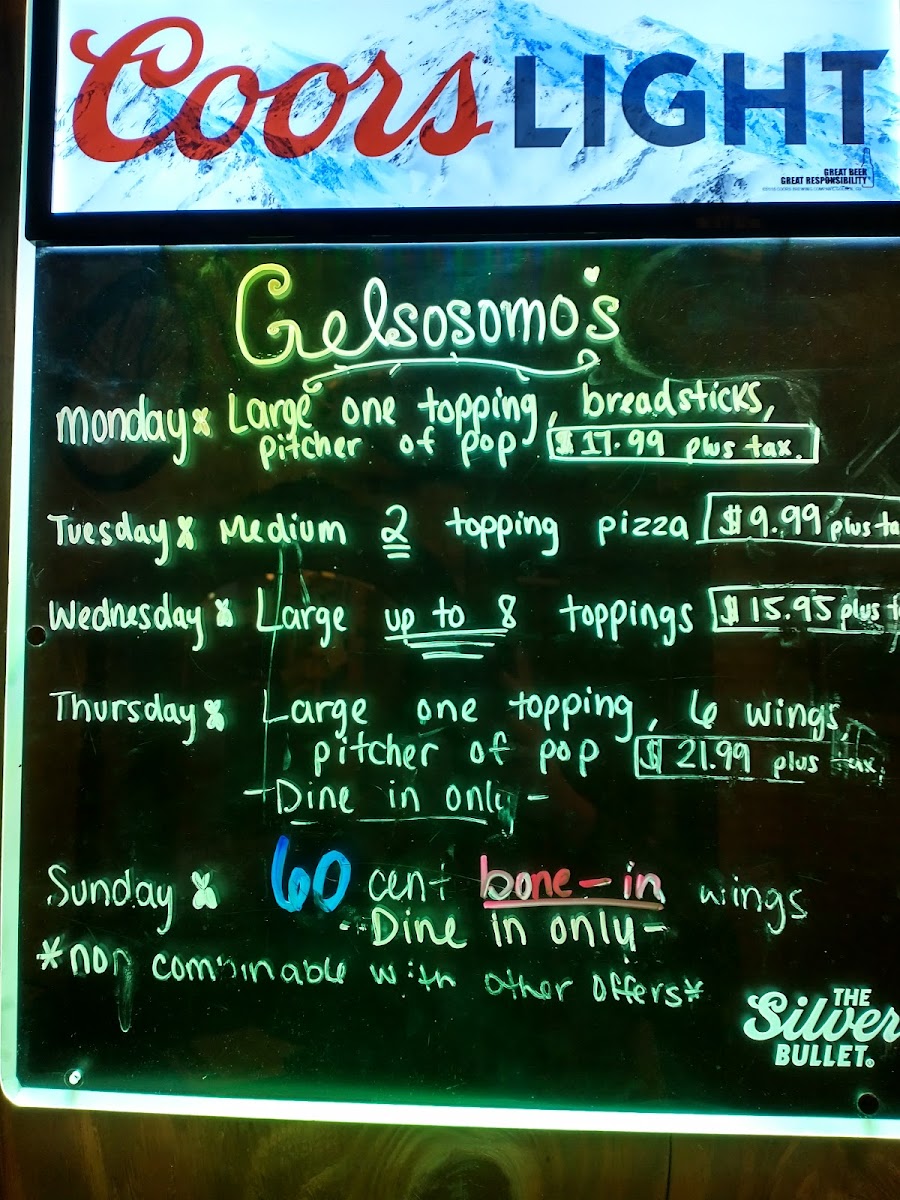 Coors LIGHT
GREAT BEER
GREAT RESPONSIBILITY
Gelsosomo's
Monday* Large one topping, breadsticks,
pitcher of pop $17.99 plus tax.
Tuesday* Medium 2 topping pizza $9.99 plus ta
Wednesday* Large up to 8 toppings $15.95 plus t
Thursday* Large one topping, 6 wings,
pitcher of pop $21.99 plus tax.
-Dine in only-
Sunday* 60 cent bone-in wings
-Dine in only-
*non combinable with other offers*
THE
Silver
BULLET.